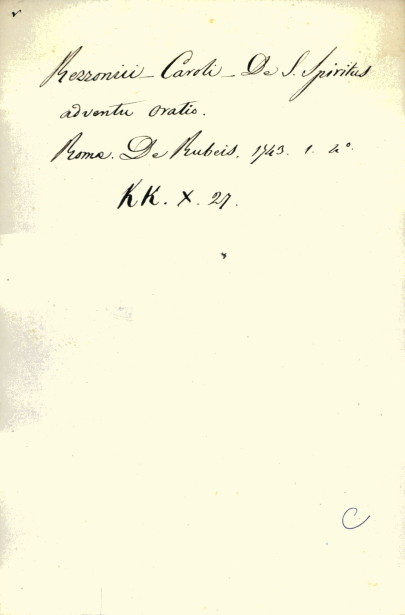 Rezzonici – Caroli – De S. Spiritus
adventu oratio.
Romæ. De Rubeis. 1743. 1. 4°.
KK. X. 27.
C